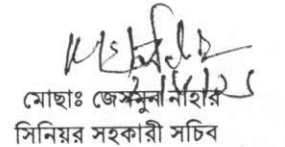 মোছাঃ জেসমুনা নাহার
সিনিয়র সহকারী সচিব